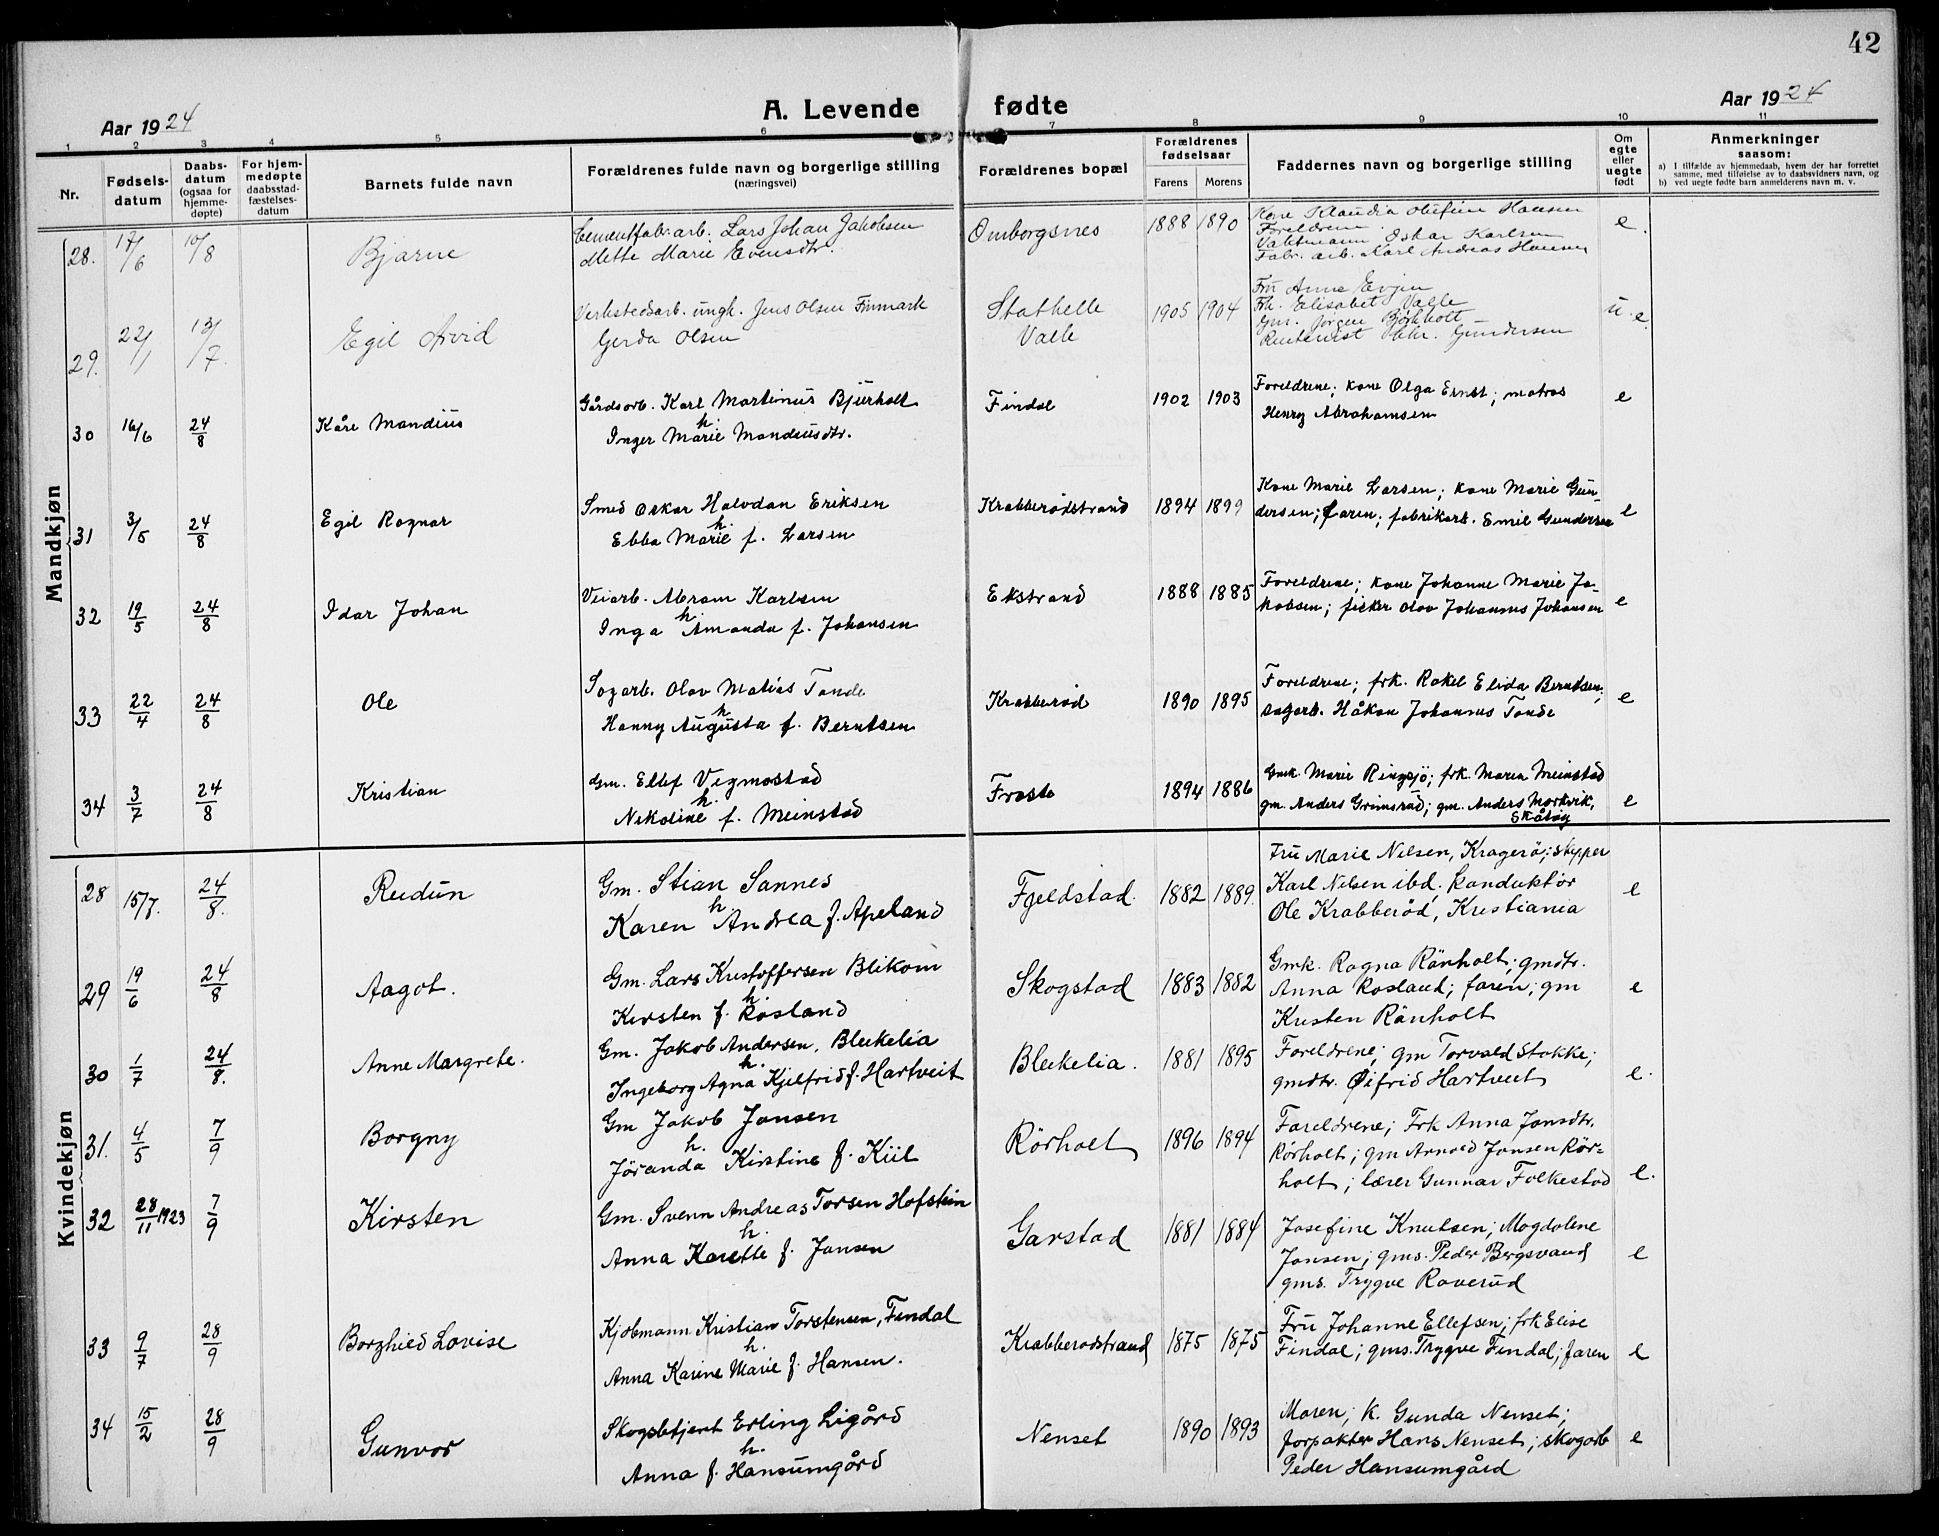 42
Aar 1924
A. Levende fødte
Aar 1924
1 2 3 4 5 6 7 8 9 10 11
Nr.
Fødsels-
datum
Daabs-
datum
(ogsaa for
hjemme-
døpte)
For hjem-
medøpte
daabsstad-
fæstelses-
datum
Barnets fulde navn
Forældrenes fulde navn og borgerlige stilling
(næringsvei)
Forældrenes bopæl
Forældrenes
fødselsaar
Farens
Morens
Faddernes navn og borgerlige stilling
Om
egte
eller
uegte
født
Anmerkninger
saasom:
a) I tilfælde av hjemmedaab, hvem der har forrettet
samme, med tilføielse av to daabsvidners navn, og
b) ved uegte fødte barn anmelderens navn m. v.
Mandkjøn
28. 17/6 10/8 Bjarne
Cementfabr.arb. Lars Johan Jakobsen
Mette Marie Evensdtr.
Omborgsnes 1888 1890
Kone Klaudia Olefine Hansen
Foreldrene
Vaktmann Oskar Karlsen
Fabr. arb. Karl Andreas Hansen
e.
29. 22/1 13/7. Egil Arvid
Verkstedsarb. ungk. Jens Olsen Finmark
Gerda Olsen
Stathelle
Valle
1905 1904
Fru Anna Evjen
Frk. Elisabet Valle
Gm. Jørgen Bjørkholt
Gundersen
u.e.
30 16/6 24/8 Kåre Mandius
Gårdsarb. Karl Martinus Bjurholt
h.
Inger Marie Mandiusdtr.
Findal 1902 1903
Foreldrene; kone Olga Ernst; matros
Henry Abrahamsen
e
31 3/5 24/8 Egil Ragnar
Smed Oskar Halvdan Eriksen
h.
Ebba Marie f. Larsen
Krabberødstrand 1894 1899
Kone Marie Larsen; kone Marie Gun-
dersen; faren; fabrikarb. Emil Gundersen
e
32 19/5 24/8 Idar Johan
Veiarb. Abram Karlsen
h.
Inga Amanda f. Johansen
Ekstrand 1888 1885
Foreldrene; kone Johanne Marie Ja-
kobsen; fisker Olav Johannes Johansen
e
33 22/4 24/8 Ole
Sagarb. Olav Matias Tande
h.
Hanny Augusta f. Berntsen
Krabberød 1890 1895
Foreldrene; frk. Rakel Elida Berntsen;
sagarb. Håkon Johannes Tande
e
34 3/7 24/8 Kristian
Gm. Ellef Vegmostad
h.
Nikoline f. Meinstad
Froste 1894 1886
Gmk. Marie Ringsjø; frk. Maren Meinstad
gm. Anders Grimsrud; gm. Anders Morkvik,
Skåtøy
e
Kvindekjøn
28 15/7. 24/8. Reidun
Gm. Stian Sannes
h.
Karen Andrea f. Apeland
Fjeldstad. 1882 1889.
Fru Marie Nilsen, Kragerø; skipper
Karl Nilsen ibd. konduktør
Ole Krabberød, Kristiania
e
29 19/6 24/8 Aagot.
Gm. Lars Kristoffersen Blikom
h.
Kirsten f. Rosland
Skogstad 1883 1882
Gmk. Ragna Rønholt; gmdtr.
Anna Rosland; faren; gm
Kristen Rønholt
e
30 1/7 24/8. Anne Margrete.
Gm. Jakob Andersen, Blekelia
h.
Ingeborg Agna Kjelfrid f. Hartveit
Blekelia. 1881 1895
Foreldrene; gm Torvald Stokke;
gmdtr. Øifrid Hartveit
e.
31. 4/5 7/9 Borgny
Gm Jakob Jansen
h.
Jøranda Kirstine f. Kiil
Rørholt 1896 1894
Foreldrene; Frk Anna Jansdtr.
Rørholt; gm Arnold Jansen Rør-
holt; lærer Gunnar Folkestad
e.
32 28/11 1923 7/9 Kirsten
Gm. Svenn Andreas Torsen Hofstein
h.
Anna Karette f. Jansen
Garstad 1881 1884
Josefine Knutsen; Magdalene
Jansen; gms. Peder Bergsvand
gms. Trygve Roverud
e
33 9/7 28/9 Borghild Lovise
Kjøbmann Kristian Torstensen, Findal
h.
Anna Karine Marie f. Hansen.
Krabberødstrand 1875 1875
Fru Johanne Ellefsen; frk Elise
Findal; gms. Trygve Findal; faren
e
34 15/2 28/9 Gunvor
Skogsbetjent Erling Ligård
h.
Anna f. Hansumgård
Nenset 1890 1893
Moren; K. Gunda Nenset;
forpakter Hans Nenset; skogarb
Peder Hansumgård
e